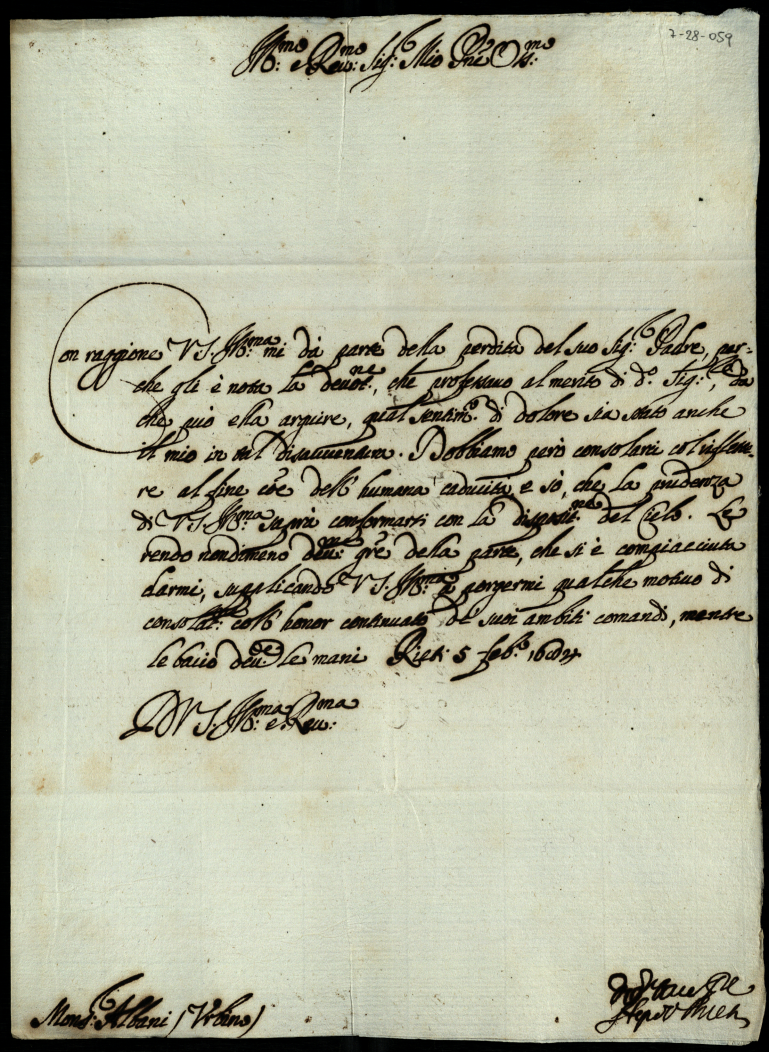 7-28-059
Ill:mo e Rev:mo Sig: Mio P.ne Oss:mo
Con raggione VS. Ill:ma mi dà parte della perdita del suo Sig:r Padre, per-
che gli è nota la devot:ne, che professavo al merito di d.o Sig:re, da
che può ella arguire, qual sentim.o di dolore sia stato anche
il mio in tal disavventura. Dobbiamo però consolarci col riflette-
re al fine cōe dell' humana caducità, e sò, che la prudenza
di VS. Ill:ma saprà conformarsi con la disposit:ne del Cielo. Le
rendo nondimeno dev:me grē della parte, che si è compiacciuta
darmi, supplicando VS. Ill:ma a porgermi qualche motivo di
consolat:ne coll' honor continuato de suoi ambiti comandi, mentre
le bacio dev:te le mani Rieti 5 feb:o
D VS. Ill:ma e Rev:ma
Mons:r Albani (Urbino)